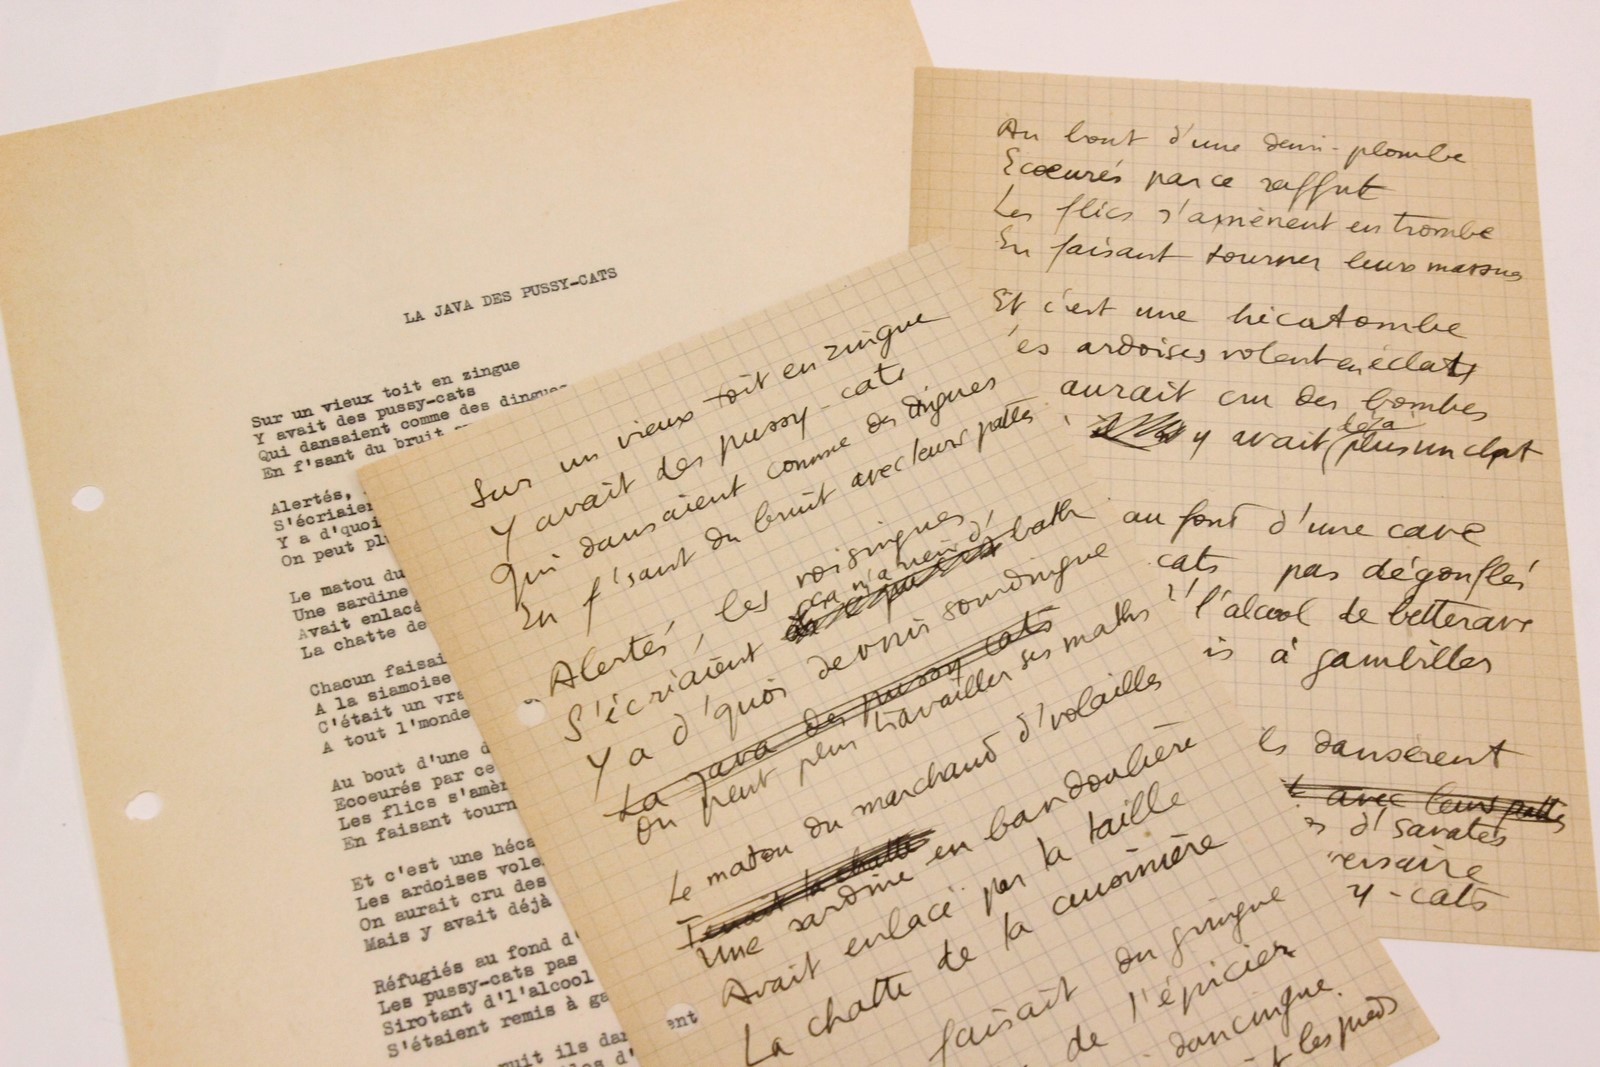 LA JAVA DES PUSSY-CATS
Sur un vieux toit en zingue
Y avait des pussy-cats
Qui dansaient comme des dingues
En f'sant du bruit
Alertés,
S'écriaien
Y a d'quoi
On peut plu
Le matou du
Une sardine
Avait enlacé
La chatte de
Chacun faisai
A la siamoise
C'était un vra
A tout l'monde
Au bout d'une d
Ecoeurés par ce
Les flics s'amèn
En faisant tourn
Et c'est une héca
Les ardoises vole
On aurait cru des
Mais y avait déjà
Réfugiés au fond d'
Les pussy-cats pas
Sirotant d'l'alcool
S'étaient remis à ga
nuit ils dan
les d'
ent
Sur un vieux toit en zingue
Y avait des pussy-cats
Qui dansaient comme des dingues
En f'sant du bruit avec leurs pattes
Alertés, les voisingues,
S'écriaient ça n'a rien d' bath
Y a d'quoi devenir sourdingue
La java des pussy cats
On peut plus travailler ses maths
Le matou du marchand d'volailles
Tenait la chatte
Une sardine en bandoulière
Avait enlacé par la taille
La chatte de la cuisinière
faisait du gringue
de l'épicier
dancingue.
les pieds
Au bout d'une demi-plombe
Ecoeurés par ce raffut
Les flics s'amènent en trombe
En faisant tourner leurs massues
Et c'est une hécatombe
es ardoises volent en éclats
aurait cru des bombes
y avait déjà plus un chat
au fond d'une cave
cats pas dégonflés
l'alcool de betterave
is à gambiller
ils dansèrent
t avec leurs pattes
s d'savates
versaire
y-cats